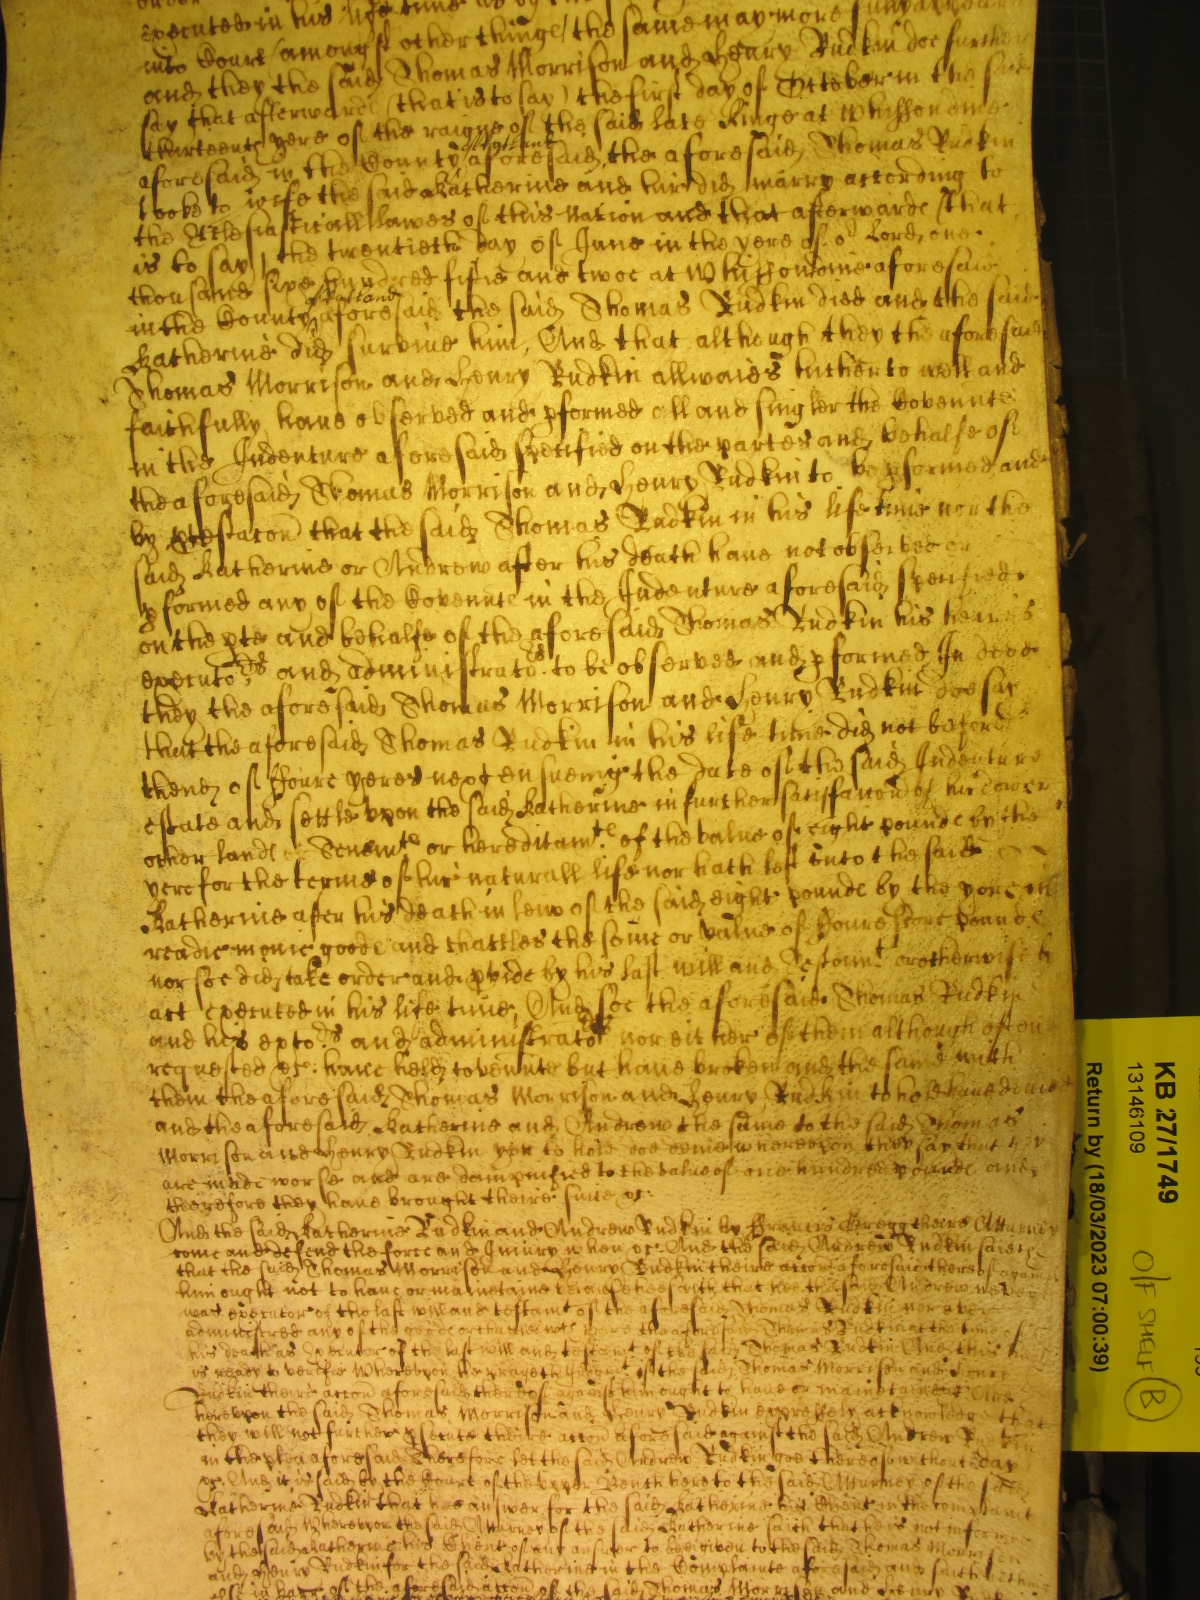 executed in his life time as by the
into Court (amongst other things) the same may more fully appeare
and they the said Thomas Morrison and Henry Rudkin doe further
say that afterwards (that is to say) the first day of October in the said
thirteenth yere of the raigne of the said late Kinge at Whissondine
aforesaid in the County of Rutland aforesaid, the aforesaid Thomas Rudkin
tooke to wife the said Katherine and her did marry according to
the Ecclesiasticall lawes of this Nation and that afterwards (that
is to say) the twentieth day of June in the yere of or Lord one
thousand sixe hundred fiftie and twoe at Whissondine aforesaid
in the County of Rutland aforesaid the said Thomas Rudkin died and the said
Katherine did survive him, And that although they the aforesaid
Thomas Morrison and Henry Rudkin allwaies hitherto well and
faithfully have observed and pformed all and singler the Covennts
in the Indenture aforesaid specified on the partes and behalfe of
the aforesaid Thomas Morrison and Henry Rudkin to be pformed and
by ptestacon that the said Thomas Rudkin in his life time nor the
said Katherine or Andrew after his death have not observed or
pformed any of the Covennts in the Indenture aforesaid specified
on the pte and behalfe of the aforesaid Thomas Rudkin his heires
executors and administrators to be observed and pformed In deed
they the aforesaid Thomas Morrison and Henry Rudkin doe say
that the aforesaid Thomas Rudkin in his life time did not before
thend of ffoure yeres next ensueing the date of the said Indenture
estate and settle upon the said Katherine in further satisfaccon of her dower
other lands Tenemts or hereditamts of the value of eight pounds by the
yere for the terme of her naturall life nor hath left unto the said
Katherine after his death in lew of the said eight pounds by the yere in
readie monie goods and chattles the some or value of ffoure score pounds
nor soe did take order and pvide by his last will and Testamt or otherwise by
act executed in his life time, And soe the aforesaid Thomas Rudkin
and his extors and administrators nor either of them although often
requested &c. have held covennts but have broken and the same with
them the aforesaid Thomas Morrison and Henry Rudkin to hold have denied
and the aforesaid Katherine and Andrew the same to the said Thomas
Morrison and Henry Rudkin yet to hold doe denie whereupon they say that they
are made worse and are dampnified to the value of one hundred pounds and
therefore they have brought theire suite &c.
And the said Katherine Rudkin and Andrew Rudkin by Francis Gregg theire Attorney
come and defend the force and Injury when &c. And the said Andrew Rudkin saieth
that the said Thomas Morrison and Henry Rudkin theire accon aforesaid thereof against
him ought not to have or maintaine because hee saith that hee the said Andrew never
was executor of the last will and testamt of the aforesaid Thomas Rudkin nor ever
administred any of the goods or chattles were the aforesaid Thomas Rudkin at the time of
his death as Executor of the last will and testamt of the said Thomas Rudkin And this hee
is ready to verifie Whereupon hee prayeth Judgmt if the said Thomas Morrison and Henry
Rudkin theire accon aforesaid thereof against him ought to have or maintaine &c. And
hereupon the said Thomas Morrison and Henry Rudkin expressly acknowledge that
they will not further psecute theire accon aforesaid against the said Andrew Rudkin
in the plea aforesaid Therefore let the said Andrew Rudkin goe thereof without day
&c. And it is said by the Court of the upper Bench here to the said Attorney of the said
Katherine Rudkin that hee answer for the said Katherine his Client in the complaint
aforesaid Whereupon the said Attorney of the said Katherine saith that he is not informed
by the said Katherine his Client of any answer to bee given to the said Thomas Morrison
and Henry Rudkin for the said Katherine in the Complainte aforesaid and saith nothing
else in barr of the aforesaid accon of the said Thomas Morrison and Henry
KB 27/1749
13146109
Return by (18/03/2023 07:00:39)
O/F SHELF B